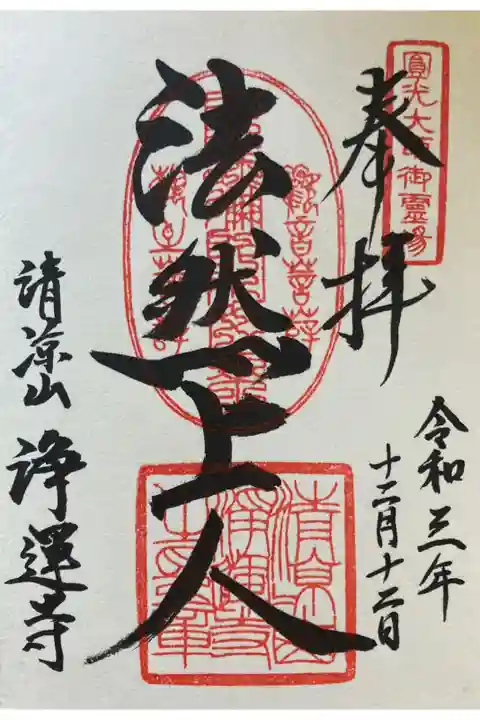 圓光大師御霊場
奉拝
令和三年
十二月十二日
觀音菩薩
法然上人
清涼山
浄運寺